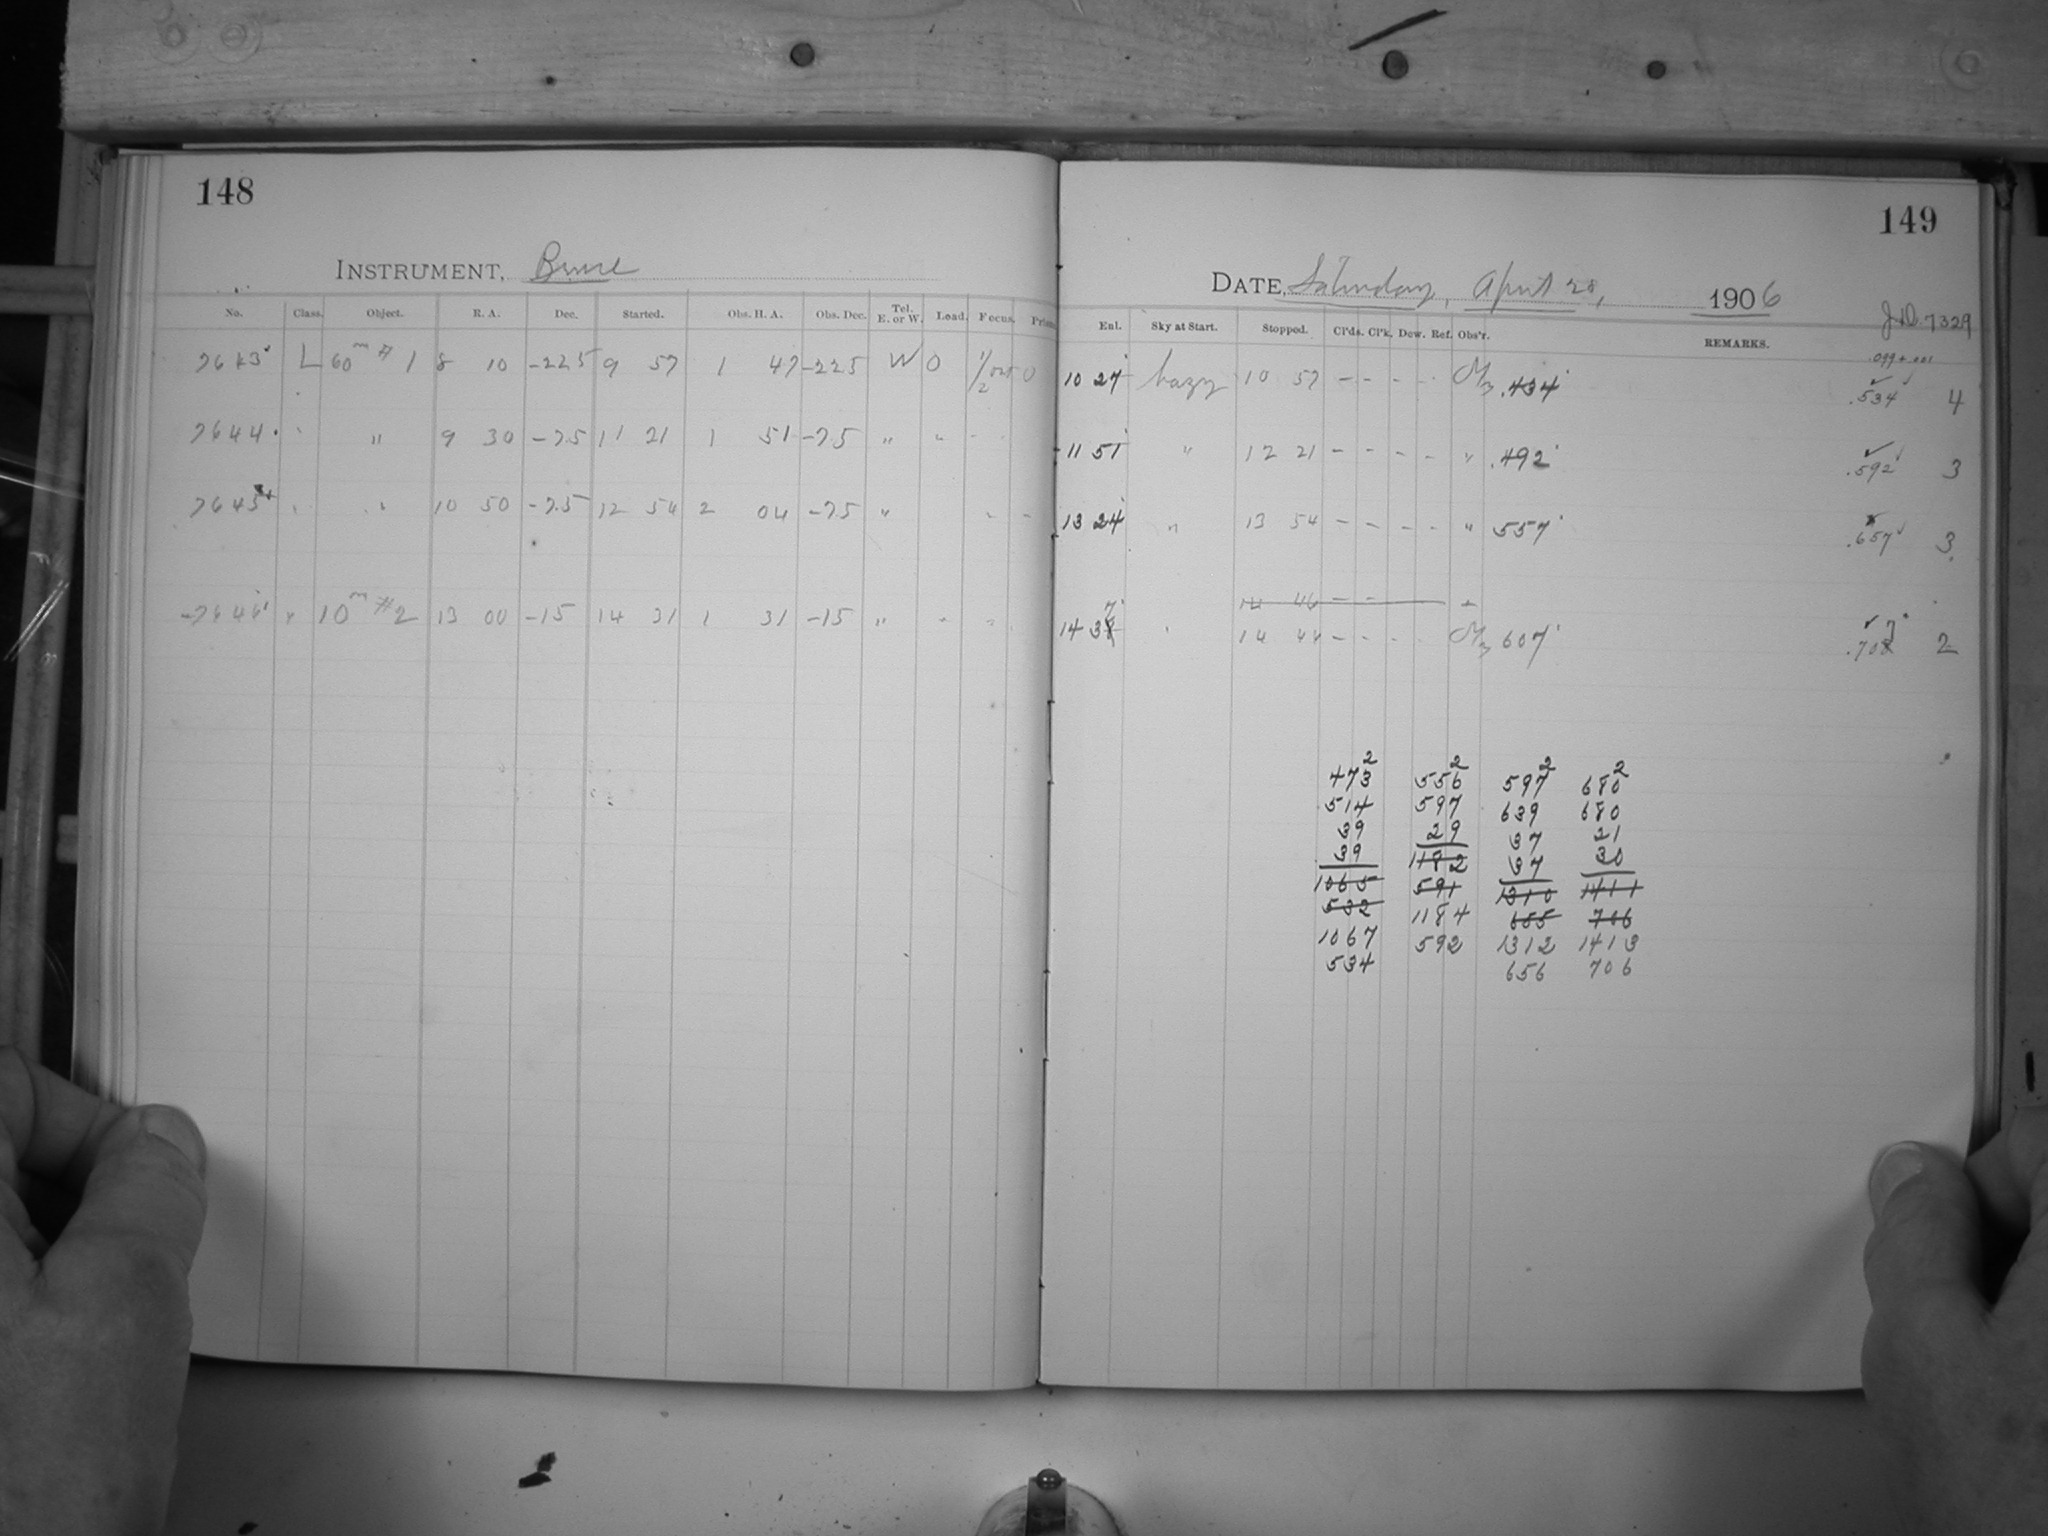 148
INSTRUMENT, Bruce
No. Class. Object. R. A. Dec. Started. Obs. H. A. Obs. Dec. Tel. E. or W. Load. Focus. Prism
7643 L 60m # 1 8 10 -22.5 9 57 1 47 -22.5 W 0 1/2 out 0
7644 " " 9 30 -75 11 21 1 51 -75 " " - -
7645 " " 10 50 -75 12 54 2 04 -75 " - -
7646 " 10m #2 13 00 -15 14 31 1 31 -15 " " "
149
DATE, Saturday, April 28, 1906
J.D. 7329
Enl. Sky at Start. Stopped. Cl'ds. Cl'k. Dew. Ref. Obs'r. REMARKS.
.099 + .001
10 27 hazy 10 57 - - - - .434 .534 4
11 51 " 12 21 - - - - " .492 .592 3
13 24 " 13 54 - - - - " 557 .657 3
14 46 - -
14 37 " 14 44 - - - - 607 .707 2
2 2 2 2
473 556 597 680
514 597 639 680
39 29 37 21
39 1182 37 30
1065 591 1310 1411
532 1184 655 706
1067 592 1312 1413
534 656 706